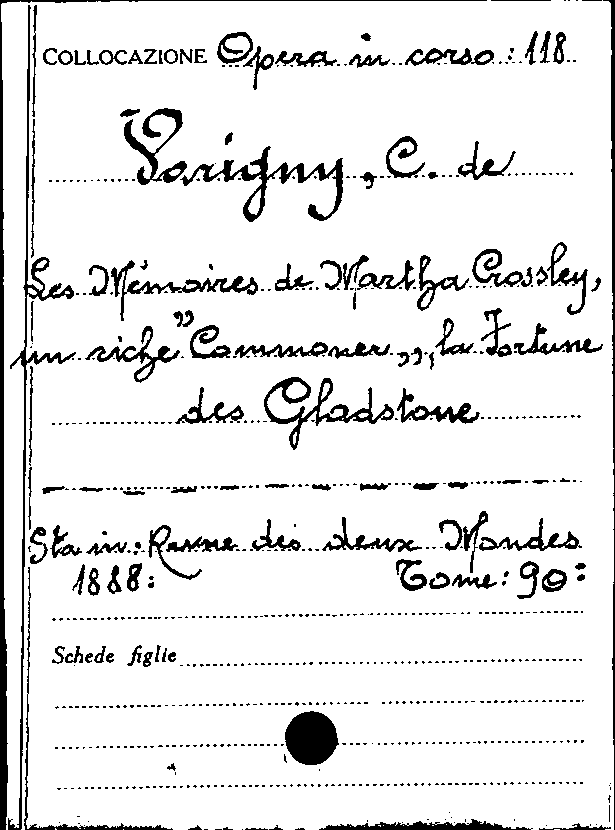 COLLOCAZIONE Opera in corso: 118
Varigny, C. de
Les Mémoires de Martha Crossley,
un riche "Commoner", la Fortune
des Gladstone
Sta in: Revue des deux Mondes
1888: Tome: 90:
Schede figlie